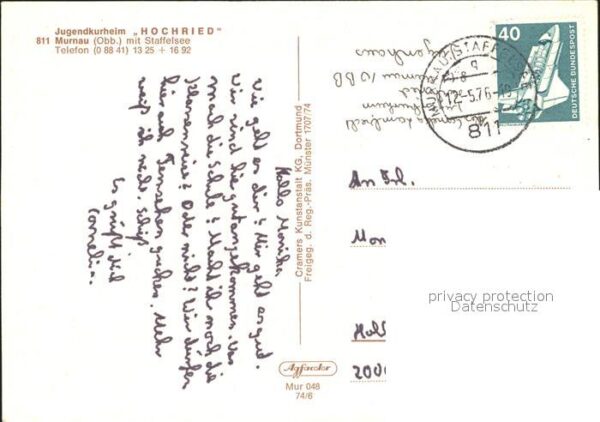 Jugendkurheim „HOCHRIED"
811 Murnau (Obb.) mit Staffelsee
Telefon (0 88 41) 13 25 + 16 92
Hallo Monika
Wie geht es dir? Mir geht es gut.
Wir sind hie gutangekommen. Was
mach die Schule? Macht ih noch die
Klassenreise? Oder nicht? Wir dürfen
hier auch Fernsehen gucken. Mehr
weiß ich nicht. Schiß
Es grüßt dich
Cornelia.
Cramers Kunstanstalt KG, Dortmund
Freigeg. d. Reg.-Präs. Münster 1707/74
Agfacolor
Mur 048
74/6
40
DEUTSCHE BUNDESPOST
12.-5.76.-18
811
An Frl.
Mon
privacy protection
Datenschutz
2000